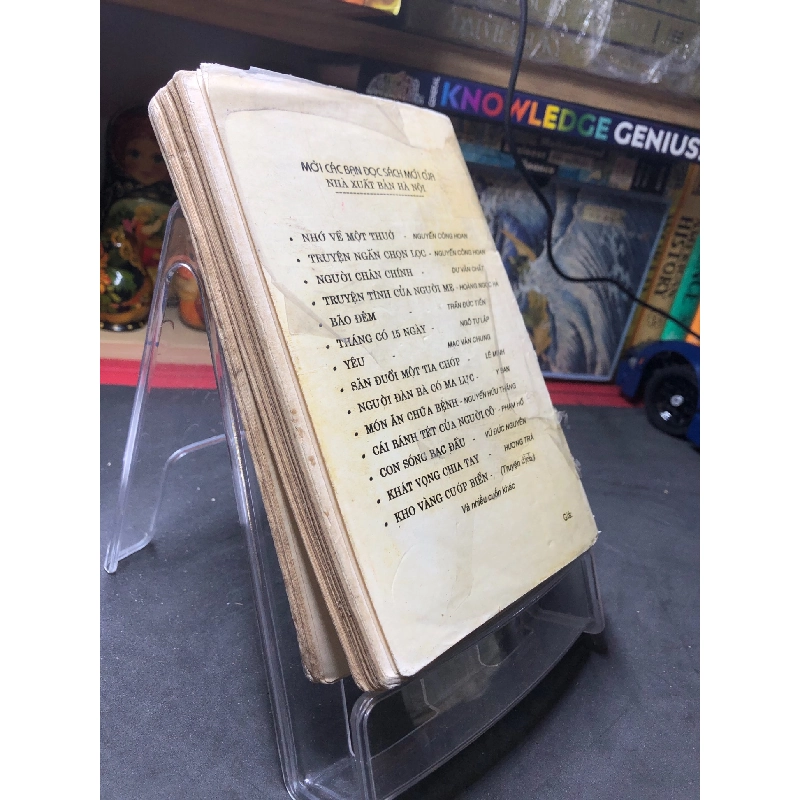 GENERAL KNOWLEDGE GENIUS!
HISTORY
MỜI CÁC BẠN ĐỌC SÁCH MỚI CỦA
NHÀ XUẤT BẢN HÀ NỘI
• NHỚ VỀ MỘT THUỞ - NGUYỄN CÔNG HOAN
• TRUYỆN NGẮN CHỌN LỌC - NGUYỄN CÔNG HOAN
• NGƯỜI CHÂN CHÍNH - DƯ VĂN CHẤT
• TRUYỆN TÌNH CỦA NGƯỜI MẸ - HOÀNG NGỌC HÀ
• BÃO ĐÊM - TRẦN ĐỨC TIẾN
• THÁNG CÓ 15 NGÀY - NGÔ TỰ LẬP
• YÊU - MẠC VĂN CHUNG
• SĂN ĐUỔI MỘT TIA CHỚP - LÊ
• NGƯỜI ĐÀN BÀ CÓ MA LỰC - Y BAN
• MÓN ĂN CHỮA BỆNH - NGUYỄN HỮU THĂNG
• CÁI BÁNH TÉT CỦA NGƯỜI CÔ - PHẠM HỔ
• CON SÔNG BẠC ĐẦU - VŨ ĐỨC NGUYÊN
• KHÁT VỌNG CHIA TAY - HƯƠNG TRÀ
• KHO VÀNG CƯỚP BIỂN - (Truyện dịch)
Và nhiều cuốn khác
Giá: